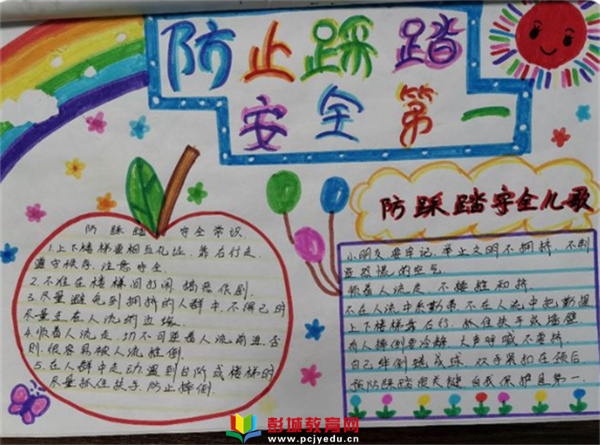 防止踩踏
安全第一
防踩踏安全儿歌
防踩踏 安全常识
1.上下楼梯要相互礼让,靠右行走,
遵守秩序,注意安全。
2.不准在楼梯间打闹,搞恶作剧。
3.尽量避免到拥挤的人群中,不得已时
尽量走在人流的边缘。
4.顺着人流走,切不可逆着人流前进,否
则,很容易被人流推倒。
5.在人群中走动,遇到台阶或楼梯时
尽量抓住扶手,防止摔倒。
小朋友要牢记,举止文明不拥挤,不制
造恐慌的空气
顺着人流走,不
在人流中系鞋带 不在人流中把鞋提
上下楼梯靠右行,抓住扶手或墙壁
有人摔倒要冷静,大声呼喊不要挤
自己绊倒蜷成球,双手紧扣在颈后
预防踩踏是关键,自我保护是第一
彭城教育网
www.pcjyedu.cn